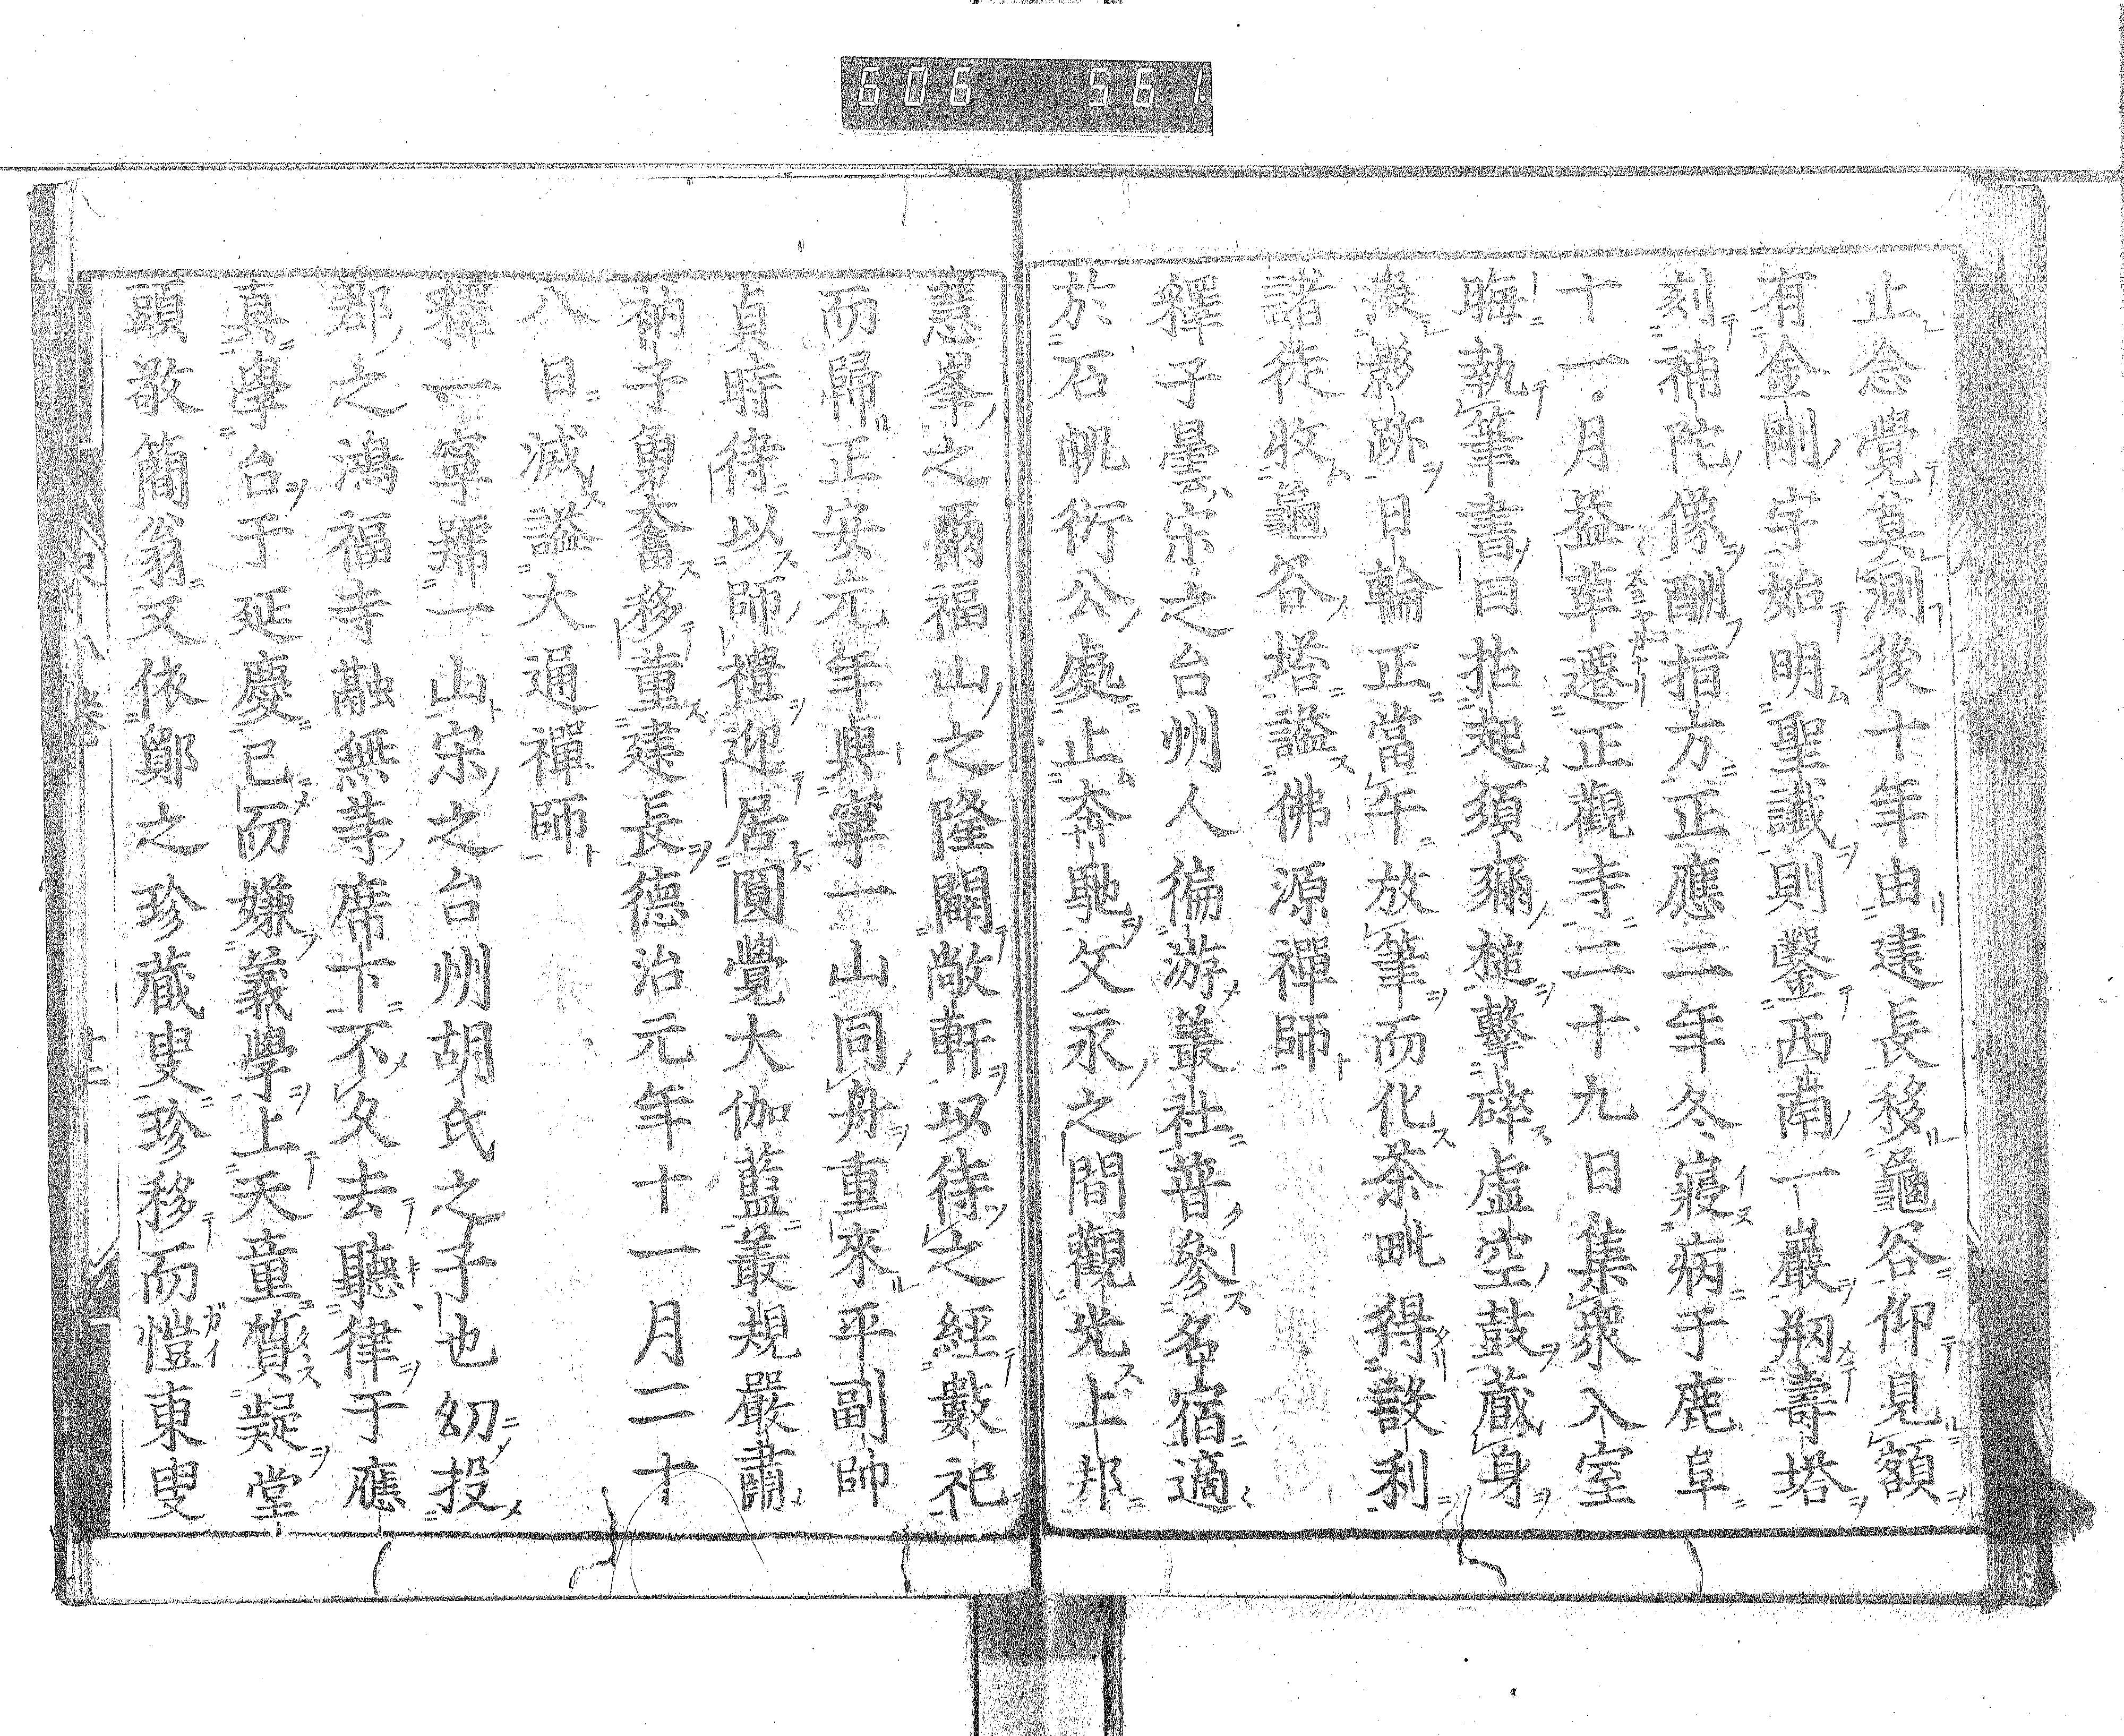 606 561.
止念覺莫測後十年由建長移龜谷仰見額
有金剛字始明聖讖則鑿西南一巖剏壽塔
刻補陀像酬指方正應二年冬寢病于鹿阜
十一月益革遷正觀寺二十九日集衆入室
晦執筆書曰拈起須彌槌擊碎虛空鼓藏身
沒影跡日輪正當午放筆而化茶毗得設利
諾徒收龜谷塔謚佛源禪師
釋子曇宋之台州人徧游叢社普參名宿適
於石帆衍公處止奔馳文永之間觀光上邦
慧峯之爾福山之隆闢敞軒以待之經數祀
而歸正安元年與寧一山同舟重來平副帥
貞時待以師禮迎居圓覺大伽藍叢規嚴肅
衲子勇奮移董建長德治元年十一月二十
八日滅謚大通禪師
釋一寧號一山宋之台州胡氏之子也幼投
郡之鴻福寺融無等席下不久去聽律于應
真學台于延慶已而嫌義學上天童質疑堂
頭敬簡翁又依鄮之珍藏叟珍移而愷東叟
史 八卷 十二